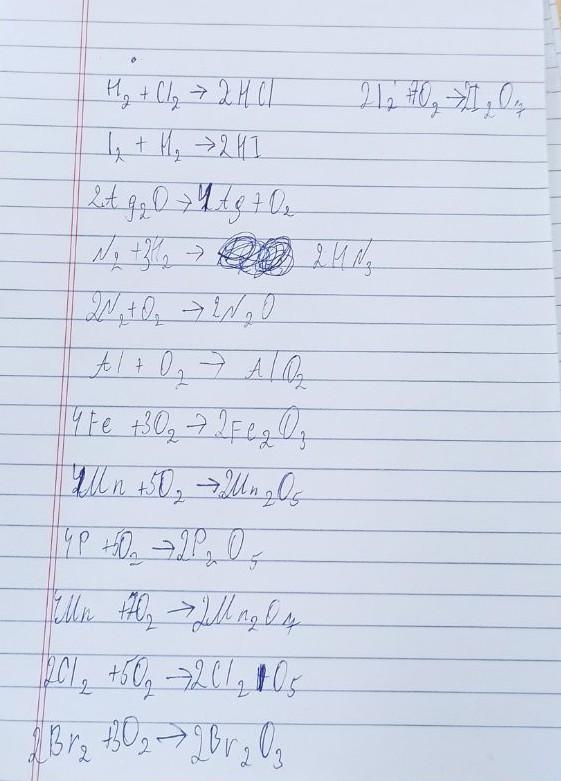 H₂ + Cl₂ → 2HCl
2I₂ + 7O₂ → 2I₂O₇
I₂ + H₂ → 2HI
2Ag₂O → 4Ag + O₂
N₂ + 3H₂ → 2HN₃
2N₂ + O₂ → 2N₂O
Al + O₂ → AlO₂
4Fe + 3O₂ → 2Fe₂O₃
4Mn + 5O₂ → 2Mn₂O₅
4P + 5O₂ → 2P₂O₅
4Mn + 7O₂ → 2Mn₂O₇
2Cl₂ + 5O₂ → 2Cl₂O₅
2Br₂ + 3O₂ → 2Br₂O₃